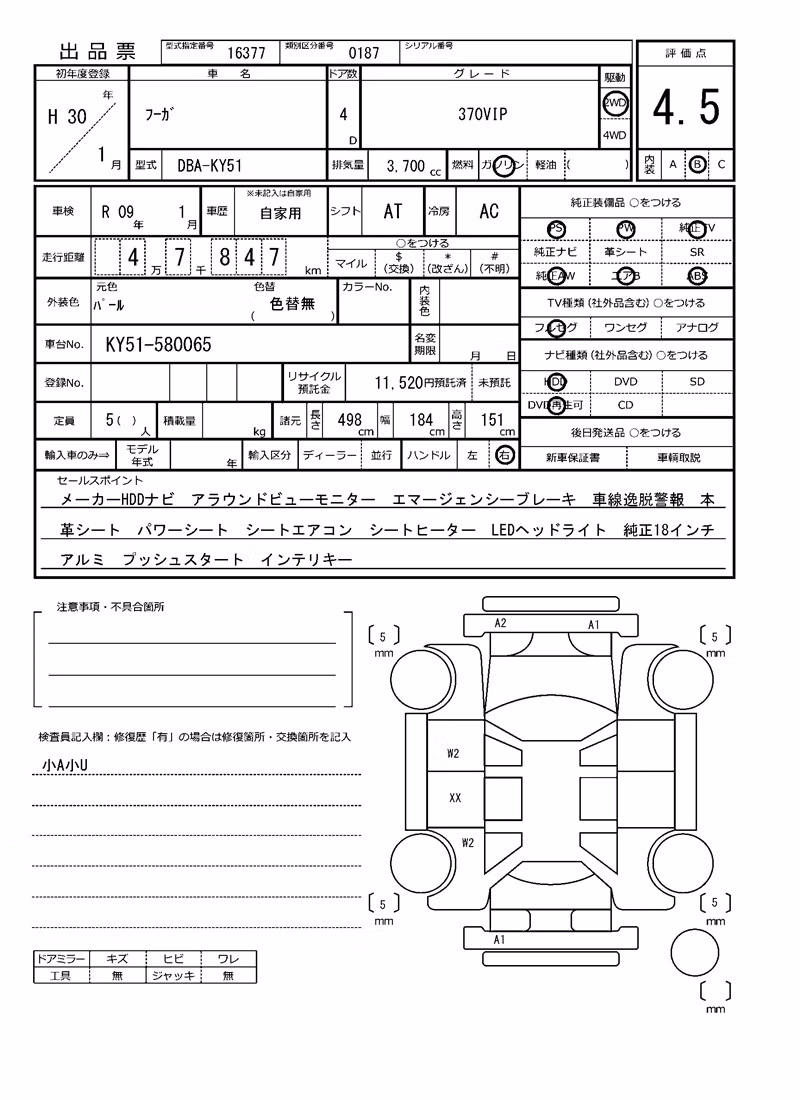 出品票 型式指定番号 16377 類別区分番号 0187 シリアル番号
評価点
4.5
内装 A B C
初年度登録 車名 ドア数 グレード 駆動
H 30 年 1 月 フーガ 4 D 370VIP 2WD 4WD
型式 DBA-KY51 排気量 3,700 cc 燃料 ガソリン 軽油 ( )
車検 R 09 年 1 月 車歴 ※未記入は自家用 自家用 シフト AT 冷房 AC
走行距離 4 万 7 千 8 4 7 km ○をつける マイル $ (交換) * (改ざん) # (不明)
外装色 元色 パール 色替 色替無 ( ) カラーNo. 内装色
車台No. KY51-580065 名変期限 月 日
登録No. リサイクル預託金 11,520円預託済 未預託
定員 5( ) 人 積載量 kg 諸元 長さ 498 cm 幅 184 cm 高さ 151 cm
輸入車のみ⇒ モデル年式 年 輸入区分 ディーラー 並行 ハンドル 左 右
純正装備品 ○をつける
PS PW 純正TV
純正ナビ 革シート SR
純正AW エアB ABS
TV種類(社外品含む)○をつける
フルセグ ワンセグ アナログ
ナビ種類(社外品含む)○をつける
HDD DVD SD
DVD再生可 CD
後日発送品 ○をつける
新車保証書 車輌取説
セールスポイント
メーカーHDDナビ アラウンドビューモニター エマージェンシーブレーキ 車線逸脱警報 本
革シート パワーシート シートエアコン シートヒーター LEDヘッドライト 純正18インチ
アルミ プッシュスタート インテリキー
注意事項・不具合箇所
検査員記入欄:修復歴「有」の場合は修復箇所・交換箇所を記入
小A小U
ドアミラー キズ ヒビ ワレ
工具 無 ジャッキ 無
A2 A1
5 mm 5 mm
W2
XX
W2
5 mm 5 mm
A1
mm